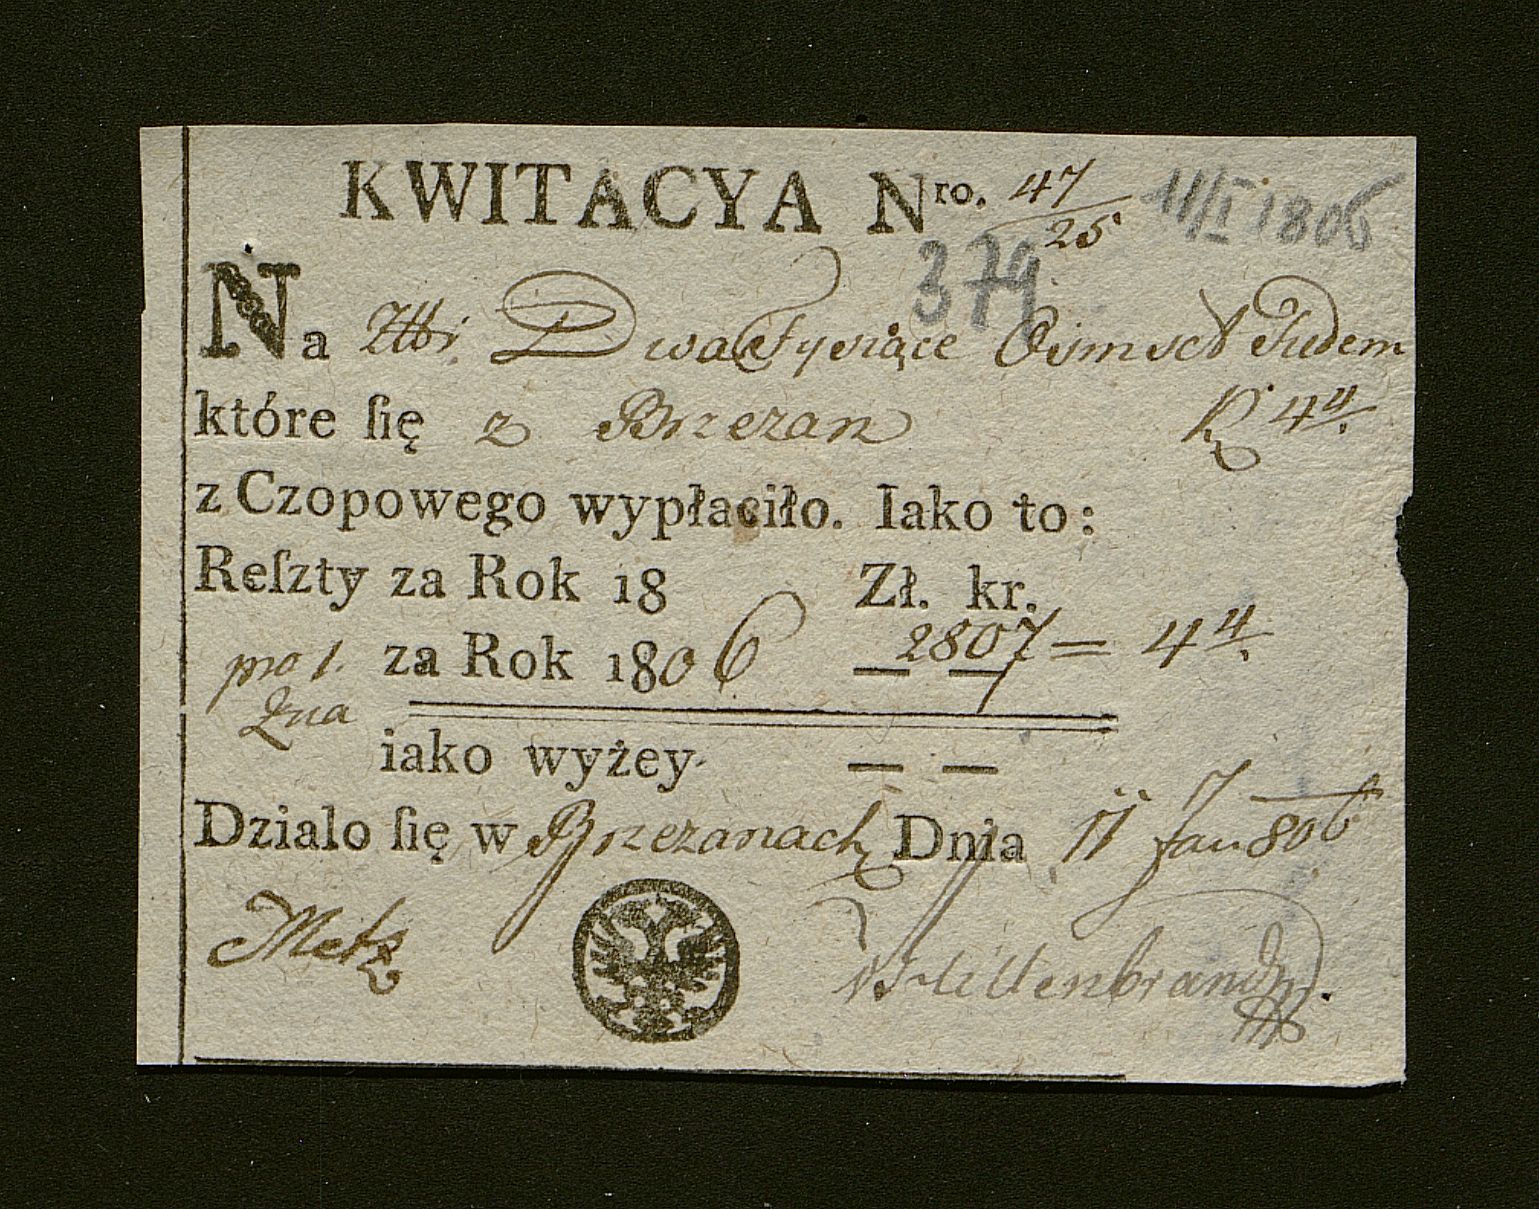 KWITACYA Nro. 47/25 11/I 1806
379
Na Złłr. Dwa Tysiące Ośmset Siedem
które ſię z Brzezan K 4 4/.
z Czopowego wypłaciło. Iako to:
Reſzty za Rok 18 Zł. kr.
pro 1. za Rok 1806 2807 = 4 4/.
iako wyżey — —
Dzialo ſię w Brzezanach Dnia 11 Jan 806
Metz Hillenbrand